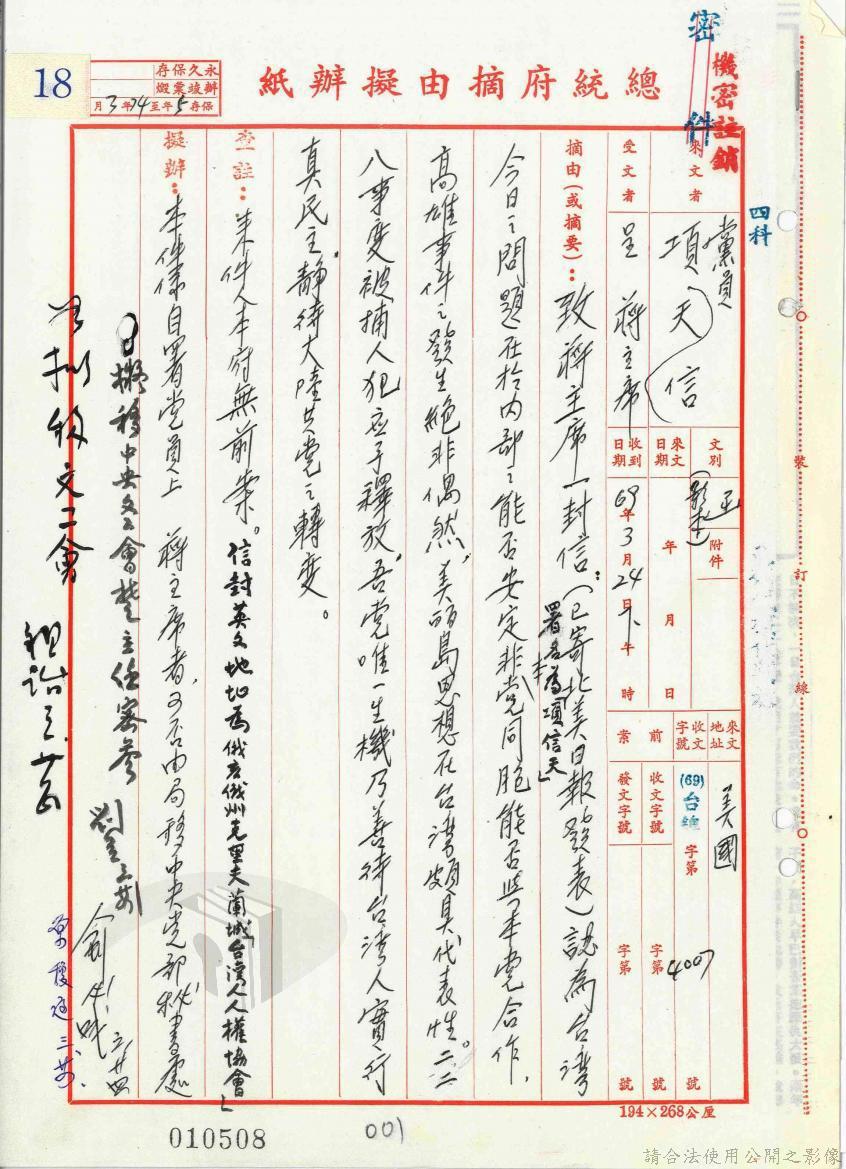 18
永久保存
辦竣彙燬
保存5年至74年3月
總統府摘由擬辦紙
密件
機密註銷
四科
來文者
黨員
項天信
受文者
呈 蔣主席
文別
函
(影本)
附件
來文日期
年 月 日
收到日期
69年3月24日下午 時
來文地址
美國
收文字號
(69)台總 字第 4007 號
前案
收文字號
字第 號
發文字號
字第 號
摘由(或摘要):致蔣主席一封信:(已寄北美日報發表)認為台灣
署名為「項信天」
今日之問題在於內部之能否安定非党同胞能否與本党合作,
高雄事件之發生絕非偶然,美丽島思想在台灣頗具代表性。二二
八事變被捕人犯应予釋放,吾党唯一生機乃善待台灣人實行
真民主,靜待大陸共党之轉变。
查註:來件人本府無前案。信封英文地址為俄亥俄州克里夫蘭城「台灣人人權協會」
擬辦:本件係自署党員上 蔣主席者,可否由局移中央党部秘書處
擬移中央文工會楚主任審參
文工會
裝訂線
194×268公厘
010508
001
請合法使用公開之影像